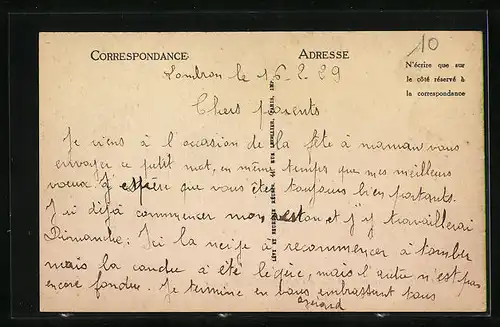 CORRESPONDANCE
ADRESSE
10
N'écrire que sur
le côté réservé à
la correspondance
Lombron le 16-2-29
Chers parents
Je viens à l'occasion de la fête à maman vous
envoyer ce petit mot, en même temps que mes meilleurs
voeux. J'espère que vous êtes toujours bien portants.
J'ai déjà commencer mon et j'y travaillerai
Dimanche. Ici la neige à recommencer à tomber
mais la couche à été légère, mais l'autre n'est pas
encore fondue. Je termine en vous embrassant tous
Gérard
LÉVY ET NEURDEIN RÉUNIS, 44, RUE LETELLIER, PARIS, IMP.